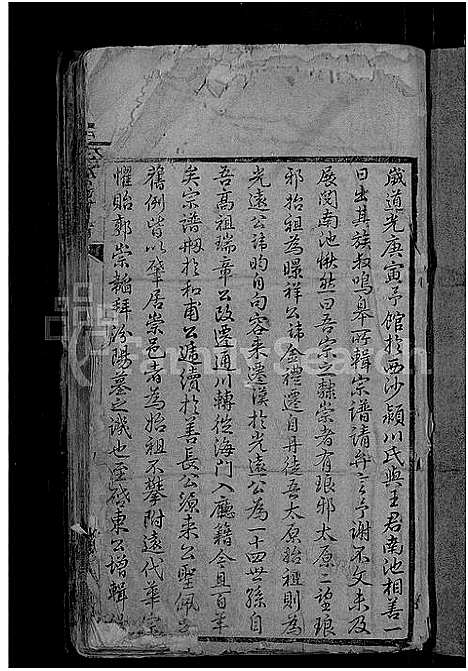 歲道光庚寅予館於西沙潁川氏與王君南池相善一
日出其族叔鳴皋所輯宗譜請弁言予謝不文未及
展閱南池愀然曰吾宗之隸崇者有琅邪太原二望琅
邪始祖為暻祥公諱金禮遷自丹徒吾太原始祖則為
光遠公諱昀自句容来遷溪於光遠公為一十四世孫自
吾高祖瑞章公改遷通川轉從海門入廳籍今且百年
矣宗譜刱於和甫公嬀續於善長公源来公聖佩
舊例皆以肇居崇邑者為始祖不攀附遠代華宗
懼貽郭崇韜拜汾陽墓之誚也至啟東公增輯
Sunny Search